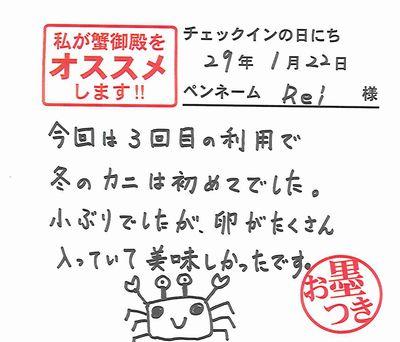 私が蟹御殿を
オススメ
します!!
チェックインの日にち
29年1月22日
ペンネーム Rei 様
今回は3回目の利用で
冬のカニは初めてでした。
小ぶりでしたが、卵がたくさん
入っていて美味しかったです。
お墨つき